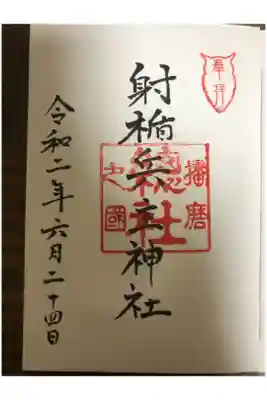 奉拝
射楯兵主神社
播磨
之國
總社
令和二年六月二十四日